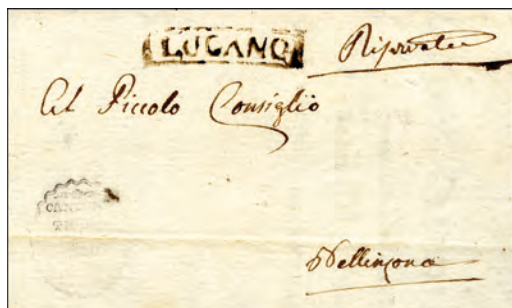 LUGANO
Riservata
Al Piccolo Consiglio
CANTON
Bellinzona